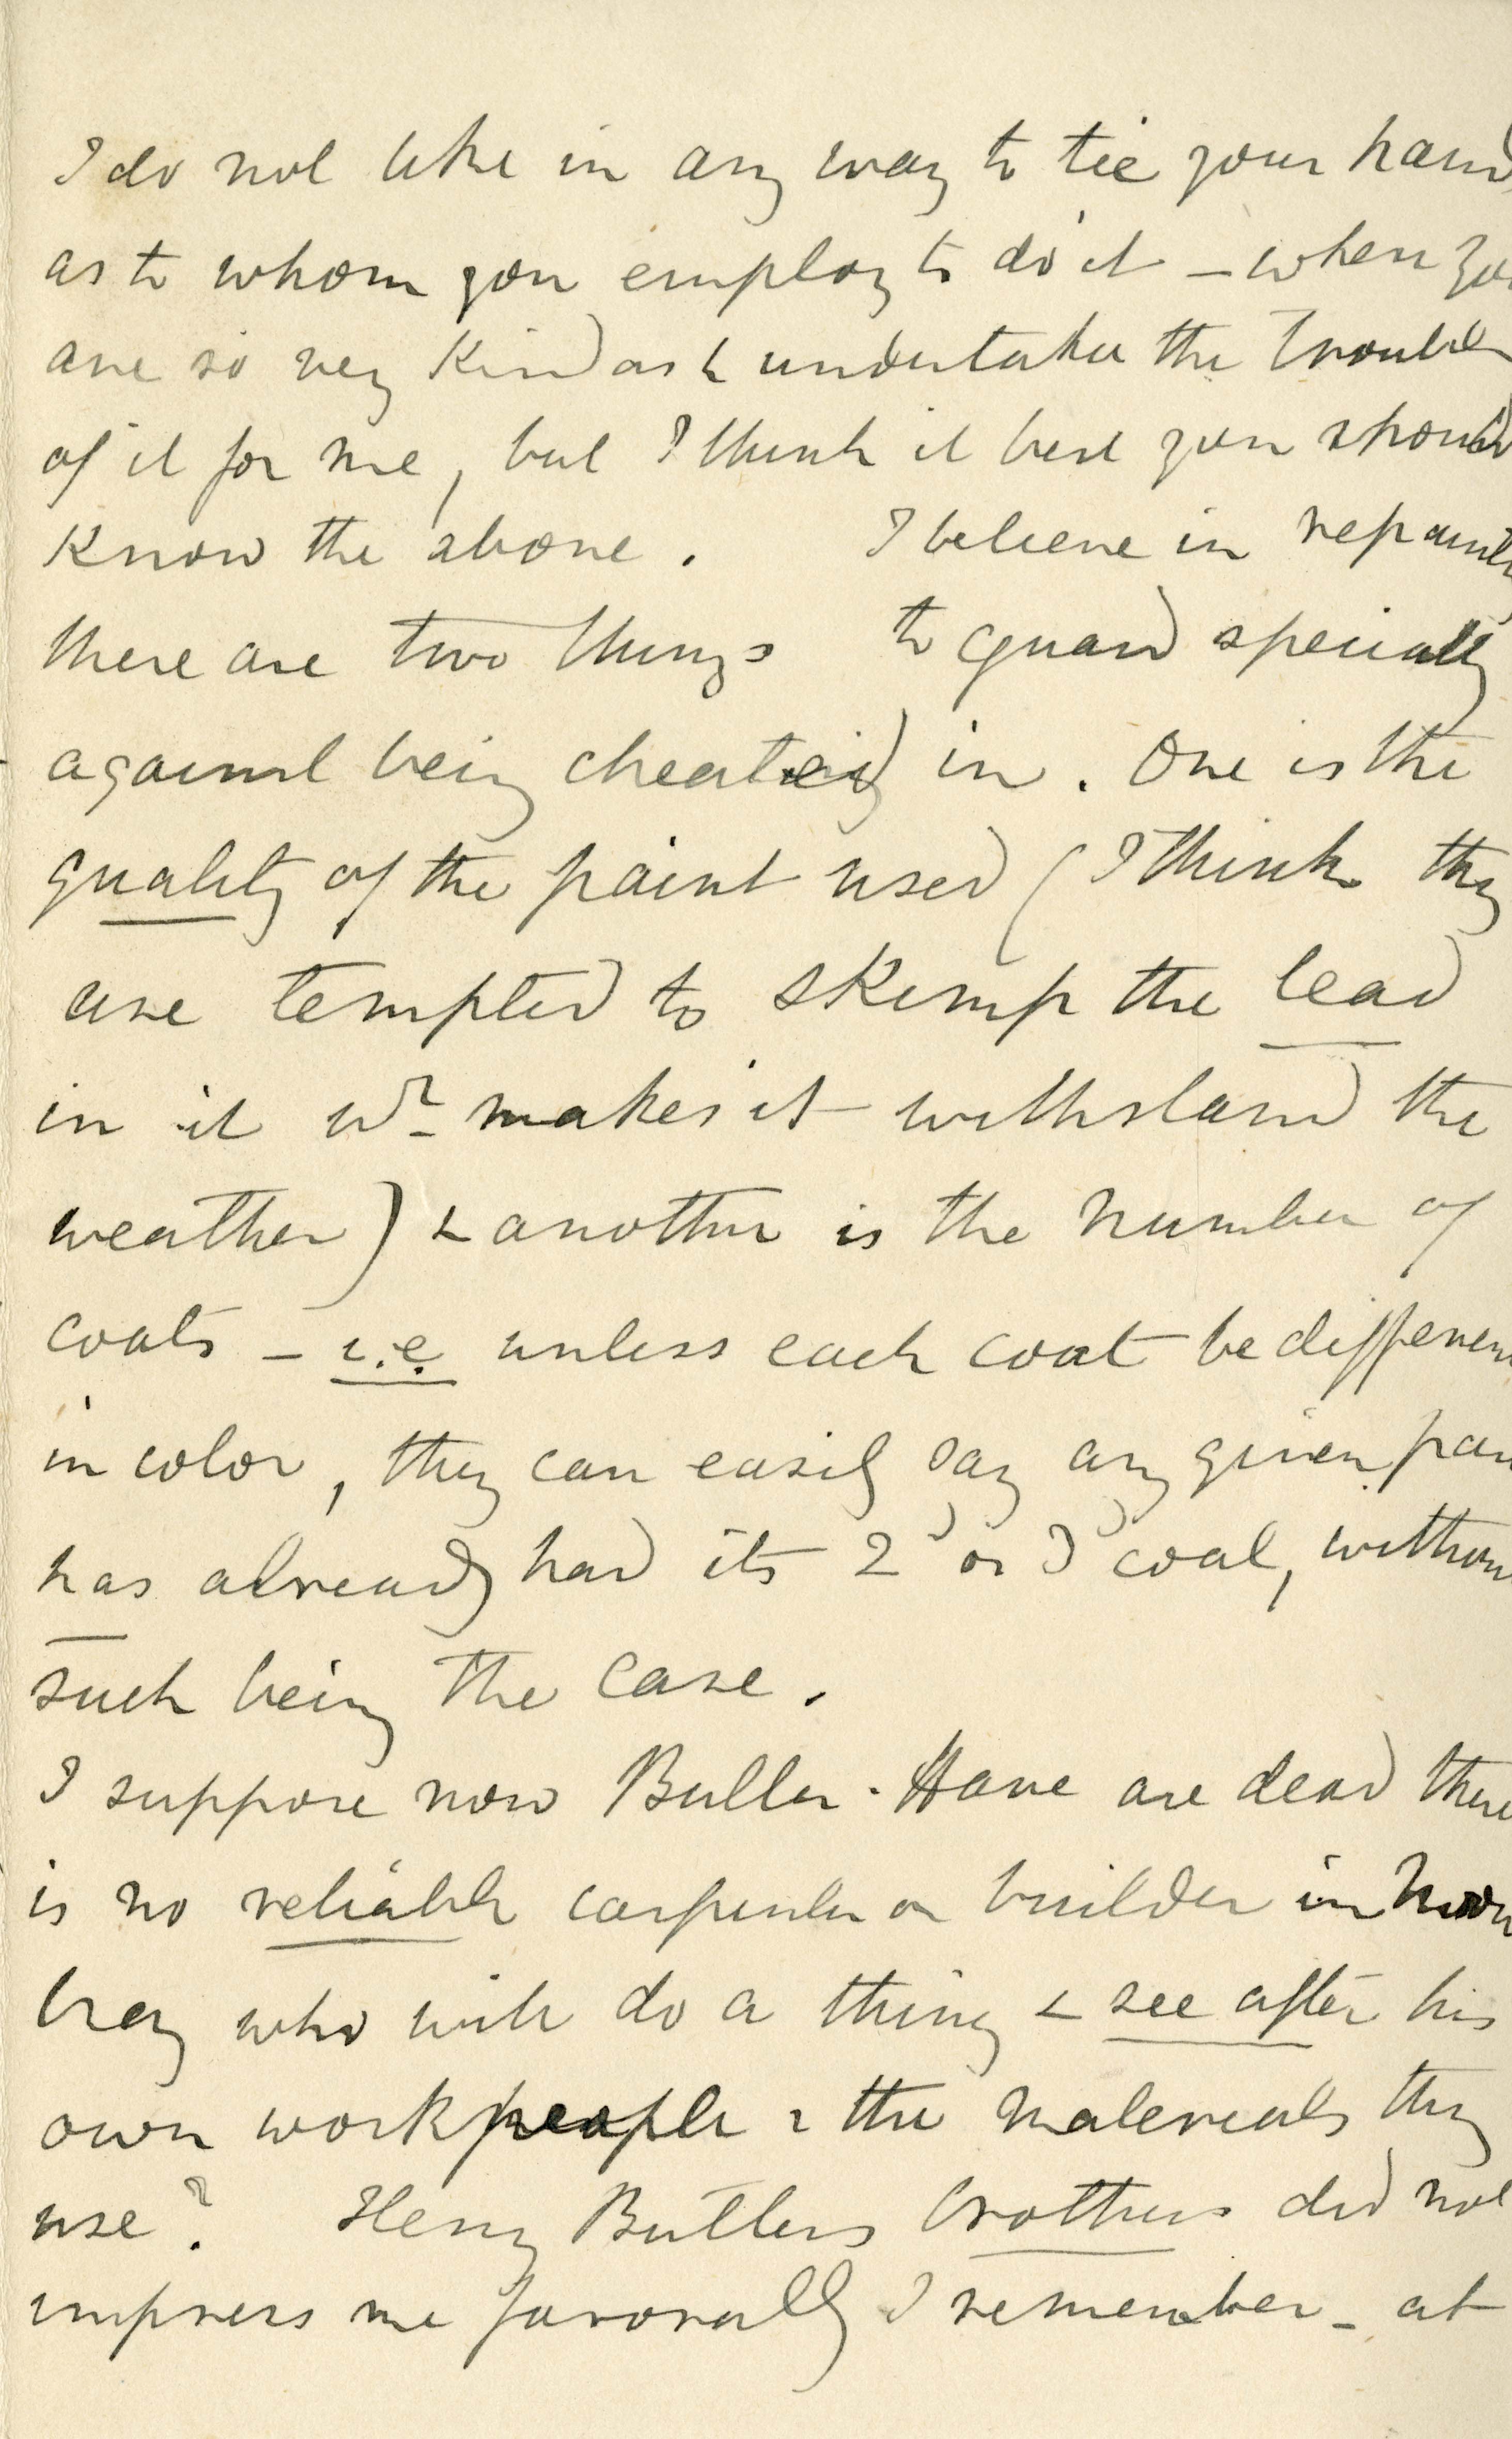 I do not like in any way to tie your hand
as to whom you employ to do it – when you
are so very kind as to undertake the trouble
of it for me, but I think it best you should
know the above. I believe in repaint
there are two things to guard specially
against being cheated in. One is the
quality of the paint used (I think they
are tempted to skimp the lead
in it wh makes it withstand the
weather) & another is the number of
coats – i.e. unless each coat be differen
in color, they can easily say any given par
has already had its 2d or 3d coat, withou
such being the case.
I suppose now Butler. Have are dead there
is no reliable carpenter or builder in
bray who will do a thing & see after his
own workpeople & the materials they
use? Henry Butlers brothers did not
impress me favorably I remember – at